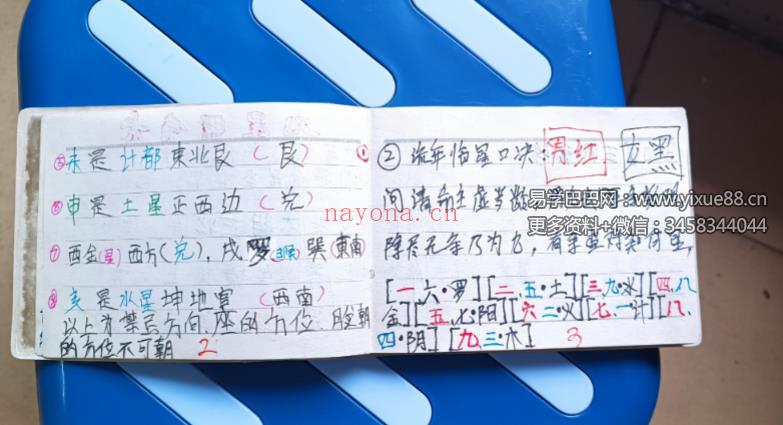 ⑤未是计都东北艮（艮）
⑥申是土星正西边（兑）
⑦酉金(星)西方(兑)，戌罗(日侯)巽(东南)
⑧亥是水星坤地宫（西南）
以上为禁忌方向，座的方位
的方位不可朝 2
①
②流年临星口决 男红 女黑
问清命主虚岁数
除尽无余乃为九，有余
[一、六·罗][二、五·土][三、九·水][四、八
金][五、七·阳][六、二·火][七、一·计][八、
四·阴][九、三·木] 3
nayona.cn
易学巴巴网：www.yixue88.cn
更多资料+微信：3458344044